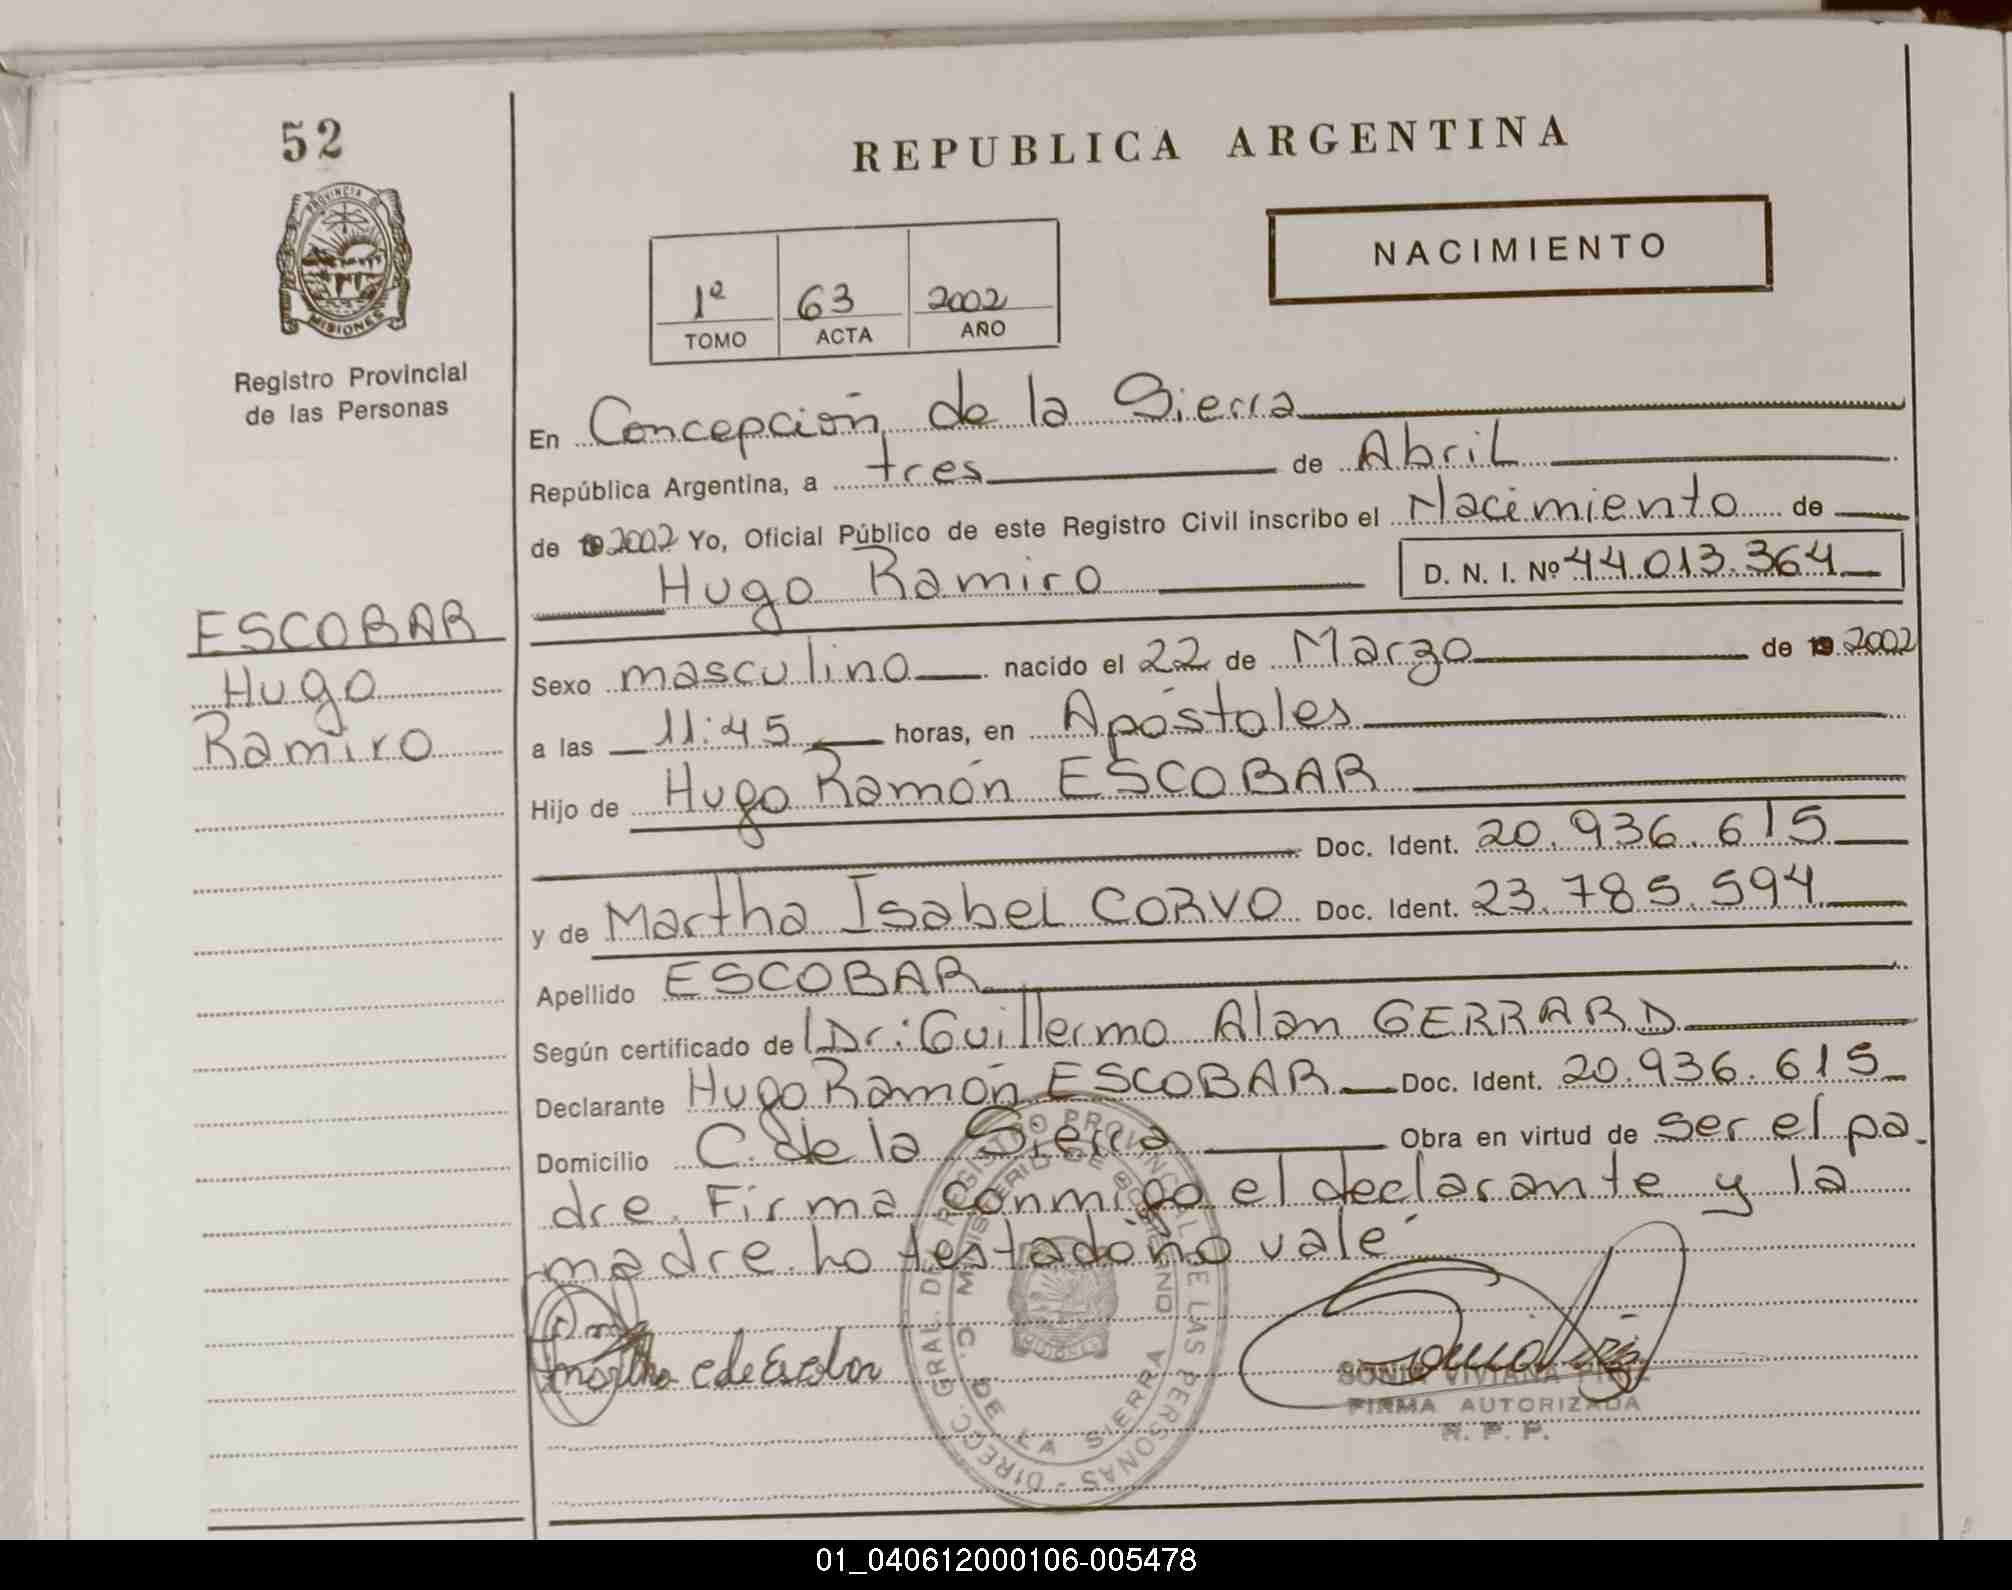 52
REPUBLICA ARGENTINA
PROVINCIA DE
MISIONES
NACIMIENTO
1º 63 2002
TOMO ACTA AÑO
Registro Provincial
de las Personas
En Concepción de la Sierra
República Argentina, a tres de Abril
de 2002 Yo, Oficial Público de este Registro Civil inscribo el Nacimiento de
Hugo Ramiro D. N. I. Nº 44.013.364
ESCOBAR
Hugo
Ramiro
Sexo masculino nacido el 22 de Marzo de 2002
a las 11:45 horas, en Apóstoles
Hijo de Hugo Ramón ESCOBAR
Doc. Ident. 20.936.615
y de Martha Isabel CORVO Doc. Ident. 23.785.594
Apellido ESCOBAR
Según certificado de Dr: Guillermo Alan GERRARD
Declarante Hugo Ramón ESCOBAR Doc. Ident. 20.936.615
Domicilio C. de la Sierra Obra en virtud de ser el pa-
dre. Firma conmigo el declarante y la
madre. ho testado: no vale
Martha C de Escobar
DIRECC. GRAL. DE REGISTRO PROVINCIAL DE LAS PERSONAS
MINISTERIO DE GOBIERNO
C. DE LA SIERRA
MISIONES
SONIA VIVIANA
FIRMA AUTORIZADA
R. P. P.
01_040612000106-005478